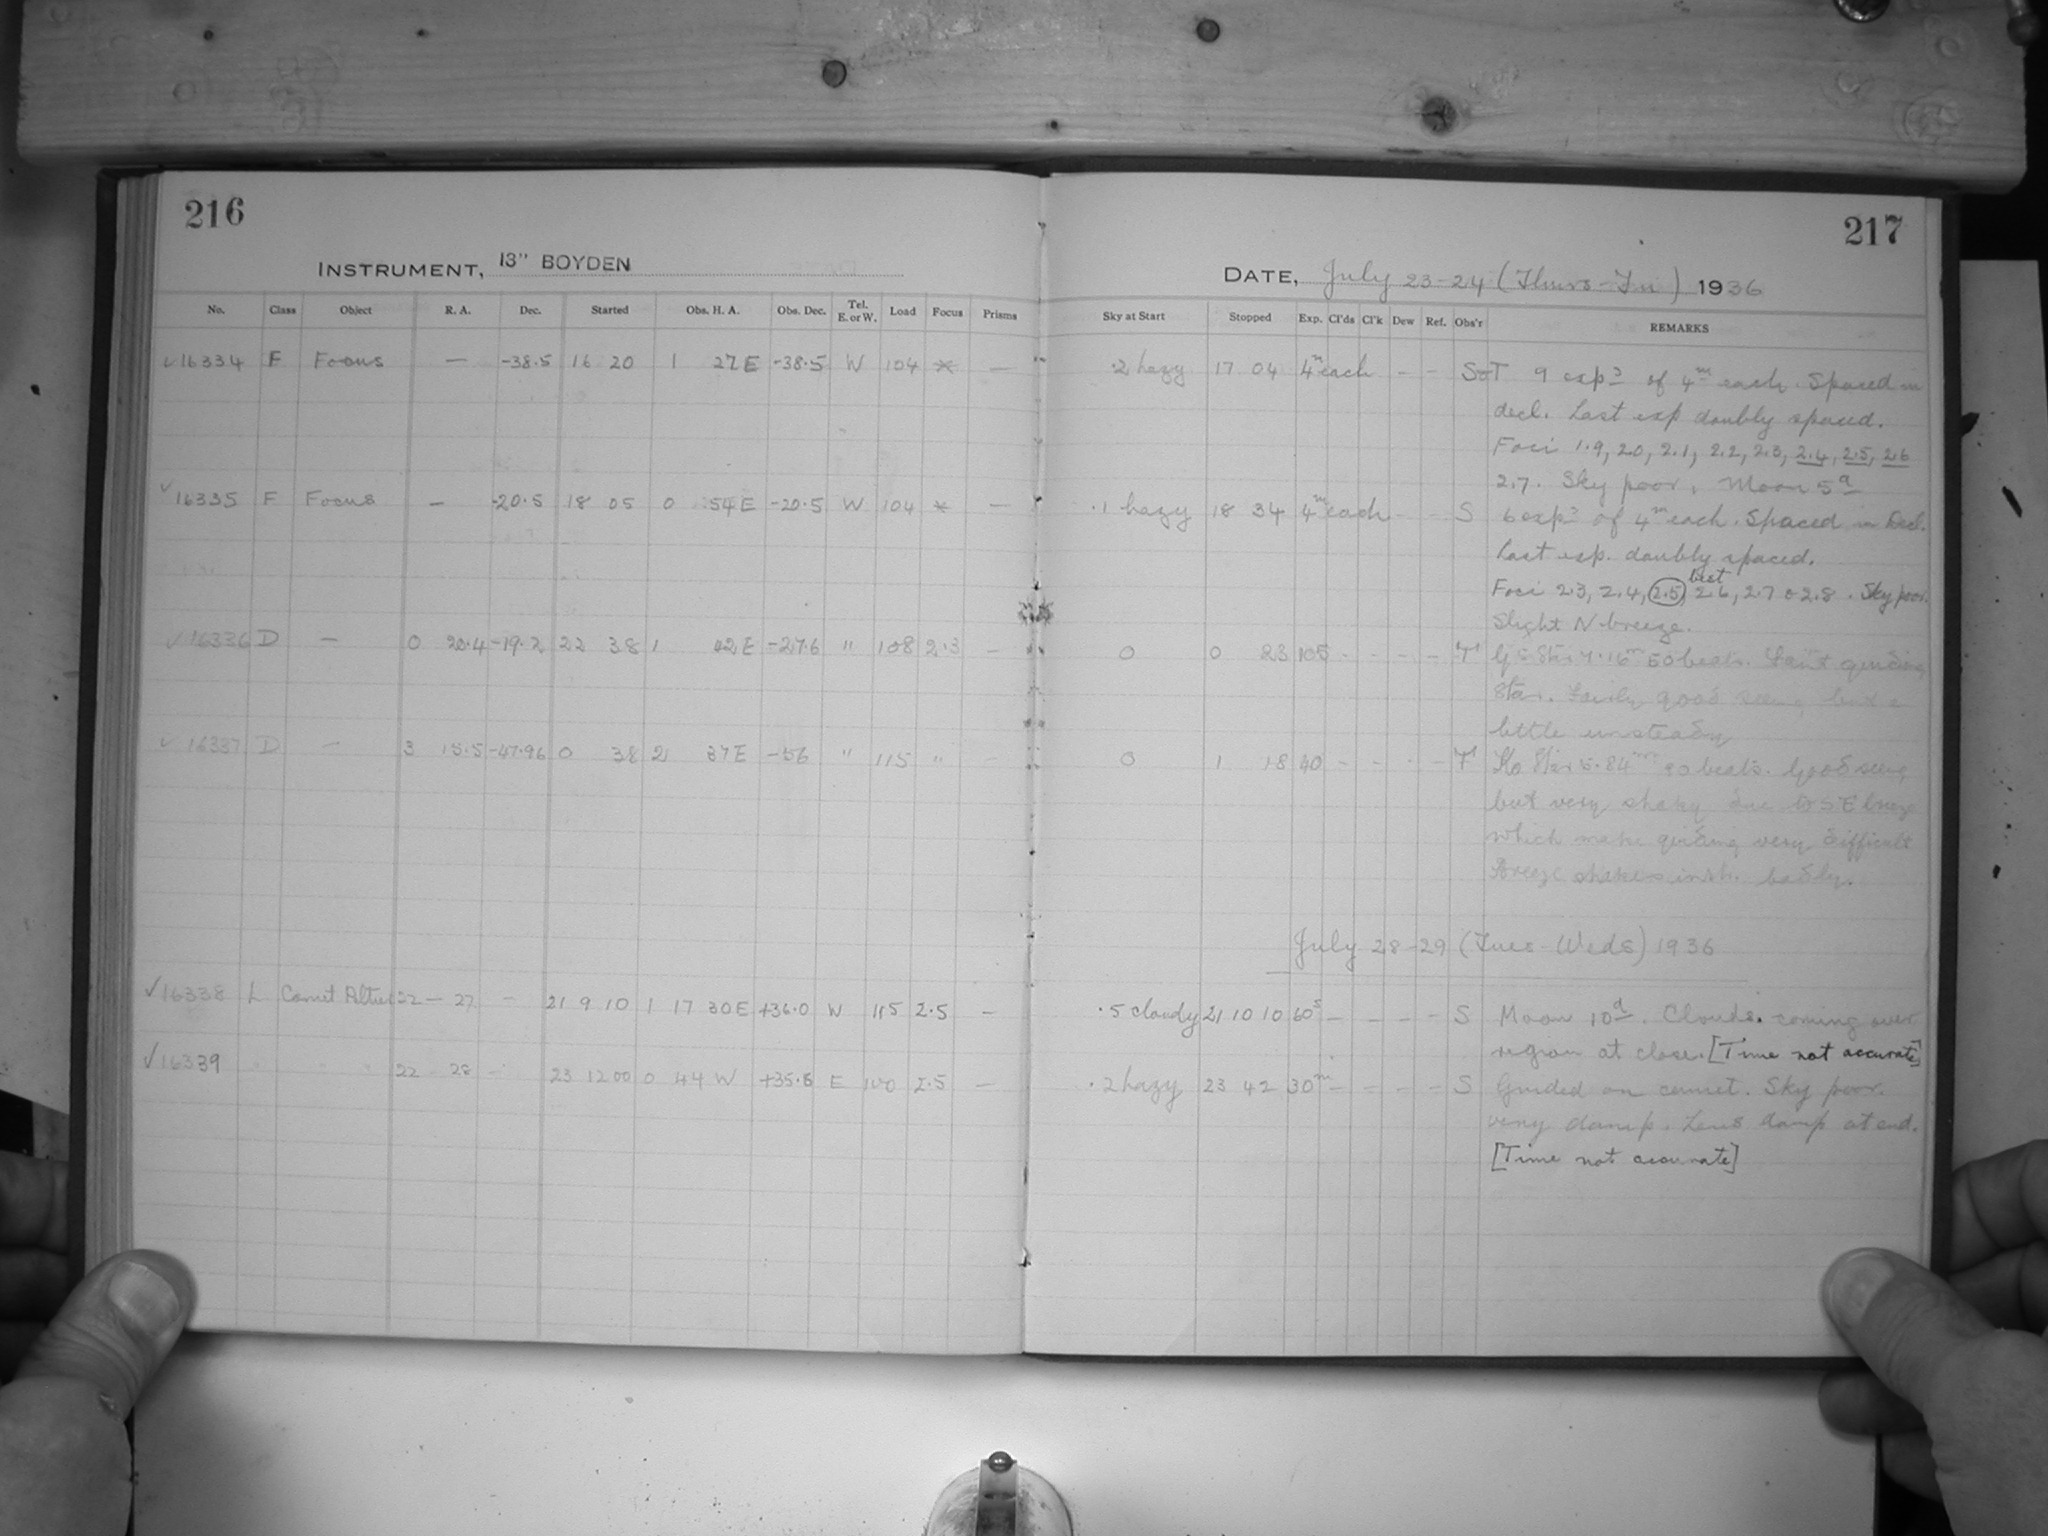 216
INSTRUMENT, 13" BOYDEN
No. Class Object R. A. Dec. Started Obs. H. A. Obs. Dec. Tel. E. or W. Load Focus Prisms
✓16334 F Focus — -38.5 16 20 1 27 E -38.5 W 104 * —
✓16335 F Focus — -20.5 18 05 0 54 E -20.5 W 104 * —
✓16336 D — 0 20.4 -19.2 22 38 1 42 E -27.6 " 108 2.3 —
✓16337 D — 3 15.5 -47.96 0 38 2 37 E -56 " 115 " —
✓16338 L Comet 22 — 27 — 21 9 10 1 17 30 E +36.0 W 115 2.5 —
✓16339 " " " 22 28 — 23 12 00 0 44 W +35.8 E 100 2.5 —
217
DATE, July 23-24 (Thurs-Fri) 1936
Sky at Start Stopped Exp. Cl'ds Cl'k Dew Ref. Obs'r REMARKS
.2 hazy 17 04 4m each - - S&T 9 exps of 4m each. Spaced in
decl. Last exp doubly spaced.
Foci 1.9, 2.0, 2.1, 2.2, 2.3, 2.4, 2.5, 2.6
2.7. Sky poor. Moon 5d
.1 hazy 18 34 4m each - - S 6 exps of 4m each. Spaced in Decl.
Last exp. doubly spaced.
best
Foci 2.3, 2.4, 2.5, 2.6, 2.7 & 2.8. Sky poor.
Slight N breeze.
0 0 23 105 - - - - T 50 beats. Faint guiding
star. Fairly good seeing but a
little unsteady
0 1 18 40 - - - - T 80 beats. Good seeing
but very shaky due to SE breeze
which make guiding very difficult
Breeze shakes badly.
July 28-29 (Tues-Weds) 1936
.5 cloudy 21 10 10 60s - - - - S Moon 10d. Clouds coming over
region at close. [Time not accurate]
.2 hazy 23 42 30m - - - - S Guided on comet. Sky poor.
very damp. Lens damp at end.
[Time not accurate]